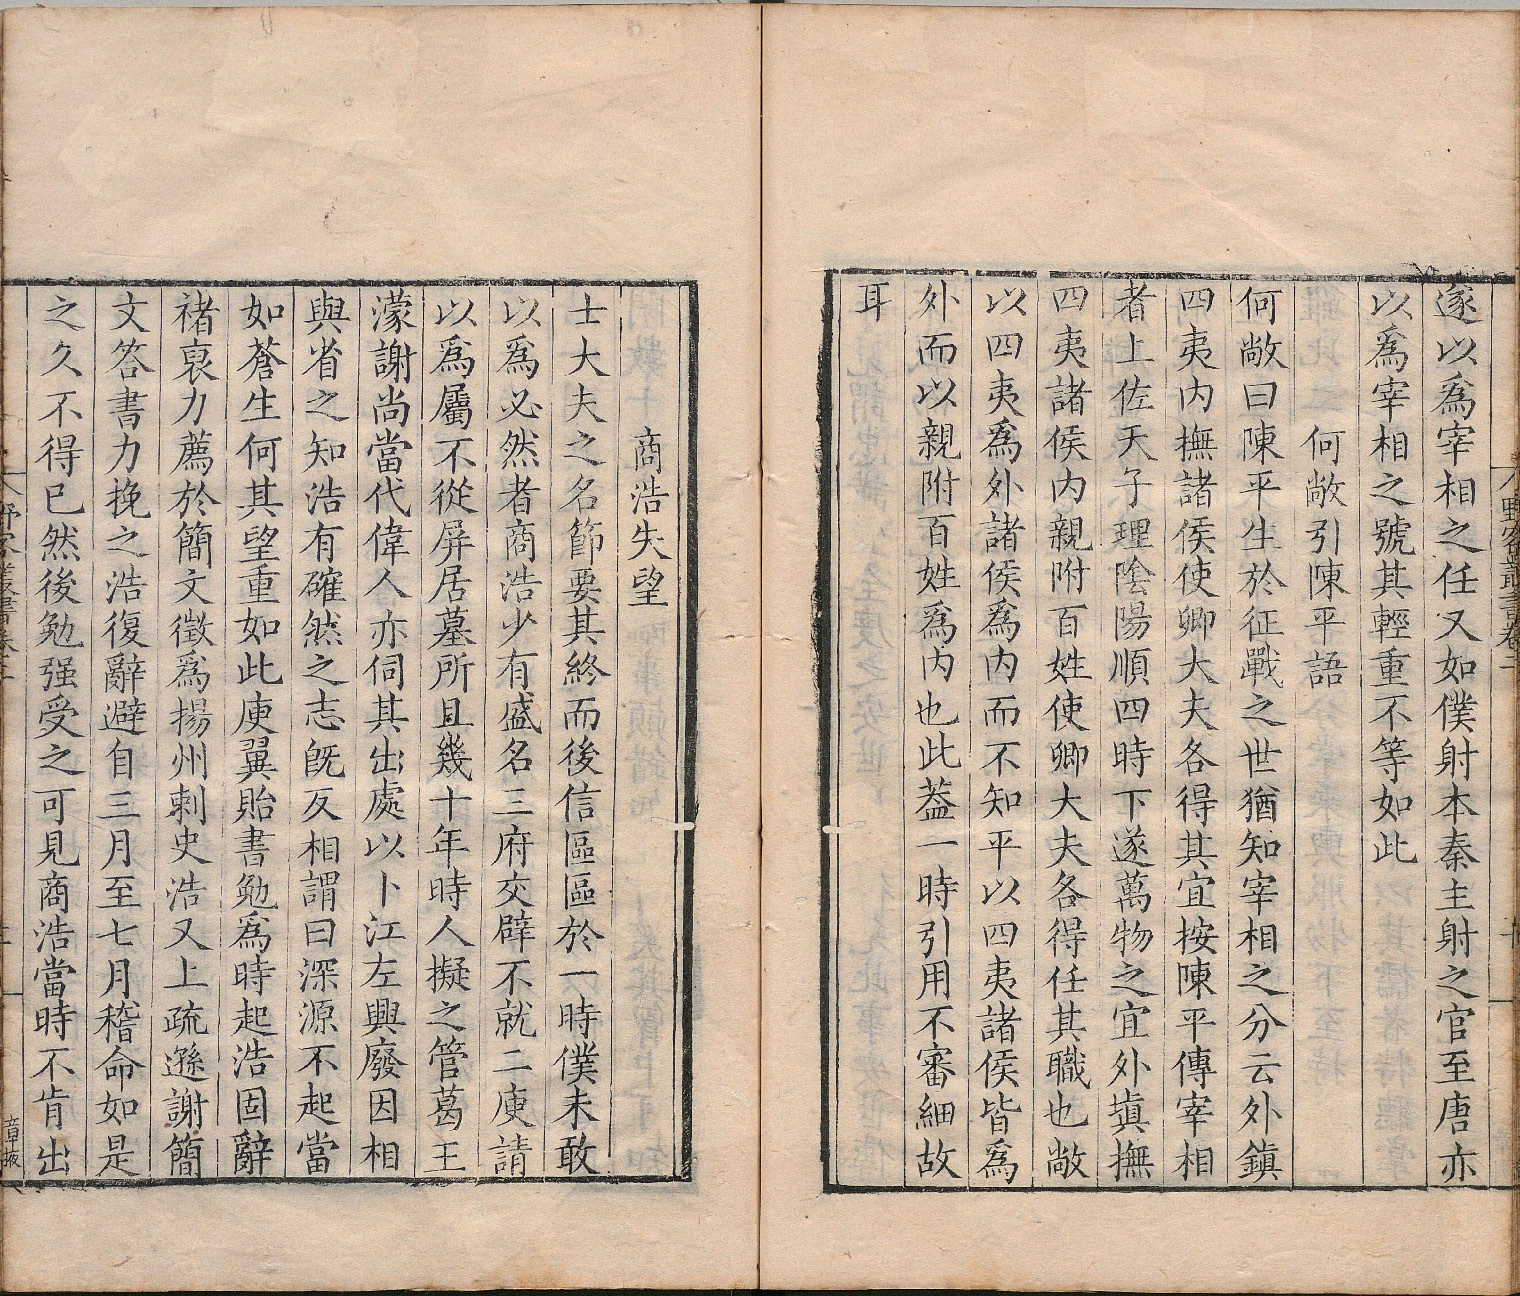 遂以爲宰相之任又如僕射本秦主射之官至唐亦
以爲宰相之號其輕重不等如此
何敞引陳平語
何敞曰陳平生於征戰之世猶知宰相之分云外鎮
四夷内撫諸侯使卿大夫各得其宜按陳平傳宰相
者上佐天子理陰陽順四時下遂萬物之宜外塡撫
四夷諸侯内親附百姓使卿大夫各得任其職也敞
以四夷爲外諸侯爲内而不知平以四夷諸侯皆爲
外而以親附百姓爲内也此葢一時引用不審細故
耳
商浩失望
士大夫之名節要其終而後信區區於一時僕未敢
以爲必然者商浩少有盛名三府交辟不就二庾請
以爲屬不從屏居墓所且幾十年時人擬之管葛王
濛謝尚當代偉人亦伺其出處以卜江左興廢因相
與省之知浩有確然之志旣反相謂曰深源不起當
如蒼生何其望重如此庾翼貽書勉爲時起浩固辭
褚裒力薦於簡文徵爲揚州剌史浩又上疏遜謝簡
文答書力挽之浩復辭避自三月至七月稽命如是
之久不得已然後勉强受之可見商浩當時不肯出
野客叢書卷二